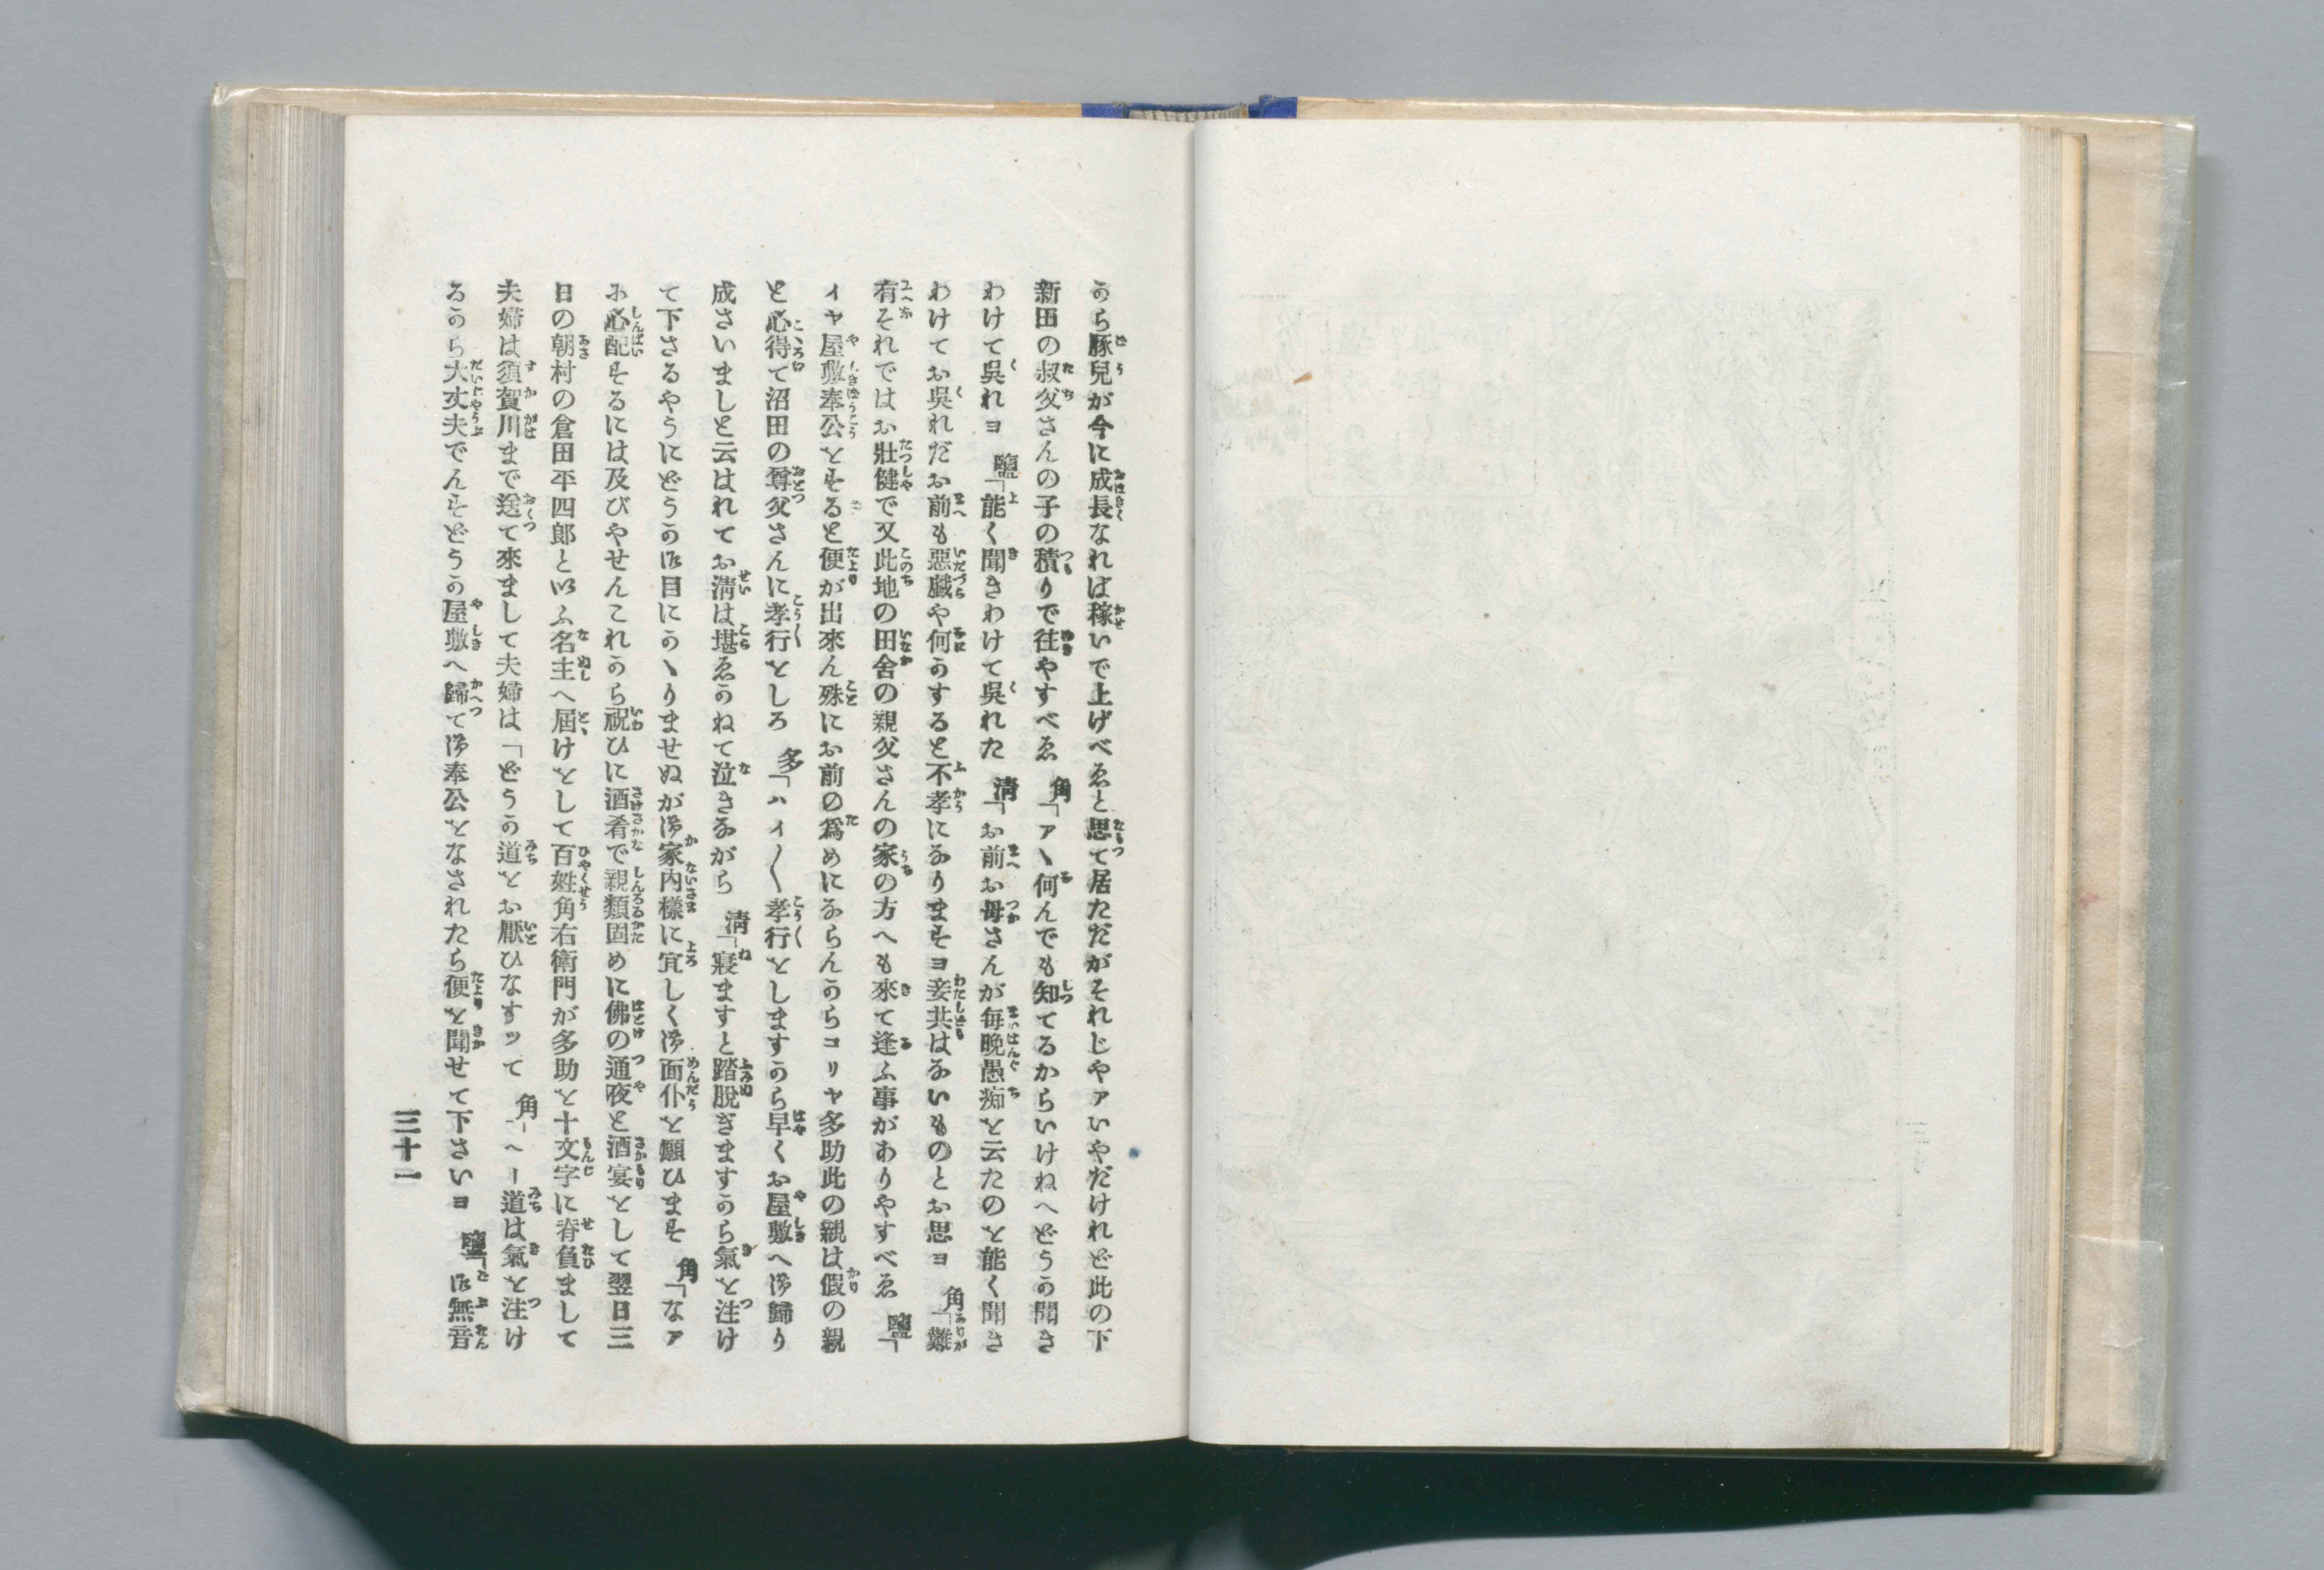 から豚兒が今に成長なれば稼いで上げべゑと思て居ただがそれじやアいやだけれど此の下
新田の叔父さんの子の積りで往やすべゑ 角「アヽ何んでも知てるからいけねへどうか聞き
わけて呉れヨ 鹽「能く聞きわけて呉れた 淸「お前お母さんが毎晩愚痴を云たのを能く聞き
わけてお呉れだお前も惡戯や何かすると不孝になりますヨ妾共はないものとお思ヨ 角「難
有それではお壯健で又此地の田舍の親父さんの家の方へも來て逢ふ事がありやすべゑ 鹽「
イヤ屋敷奉公をすると便が出來ん殊にお前の爲めにならんからコリヤ多助此の親は假の親
と必得て沼田の尊父さんに孝行をしろ 多「ハイ〱孝行をしますから早くお屋敷へ御歸り
成さいましと云はれてお淸は堪ゑかねて泣きながら 淸「寢ますと踏脱ぎますから氣を注け
て下さるやうにどうか御目にかヽりませぬが御家内樣に宜しく御面仆を願ひます 角「なア
に必配するには及びやせんこれから祝ひに酒肴で親類固めに佛の通夜と酒宴をして翌日三
日の朝村の倉田平四郎といふ名主へ屆けをして百姓角右衛門が多助を十文字に脊負まして
夫婦は須賀川まで送て來まして夫婦は「どうか道をお厭ひなすッて 角「ヘー道は氣を注け
るから大丈夫でんすどうか屋敷へ歸て御奉公をなされたら便を聞せて下さいヨ 鹽「御無音
三十一